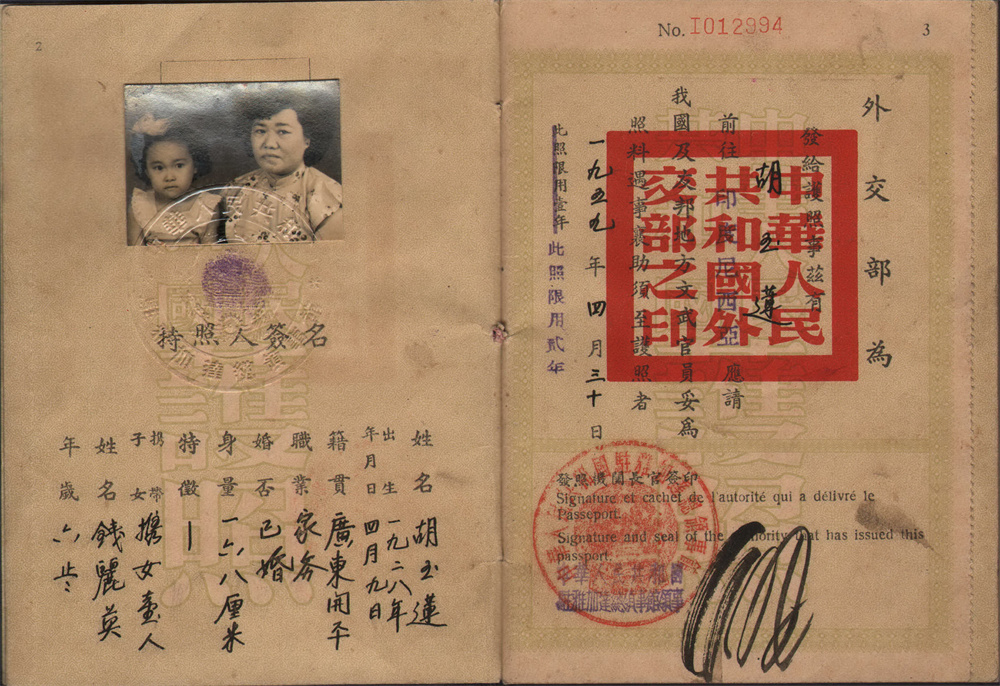 2
持照人簽名
姓名 胡玉蓮
出生年月日 一九二八年四月九日
籍貫 廣東開平
職業 家务
婚否 已婚
身量 一六八厘米
特徵 —
攜帶子女 携女壹人
姓名 錢麗英
年歲 六
No. I012994
3
外交部為
發給護照事茲有
胡玉蓮
前往印度尼西亞應請
我國及友邦地方文武官員妥為
照料遇事襄助須至護照者
一九五九年四月三十日
此照限用壹年
此照限用貳年
中華人民
共和國外
交部之印
發照機關長官簽印
Signature et cachet de l'autorité qui a délivré le
Passeport.
Signature and seal of the authority that has issued this
passport.